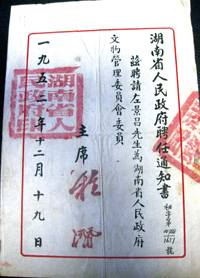 湖南省人民政府聘任通知書
茲聘請左景呂先生為湖南省人民政府
文物管理委員會委員
主席
程潛
一九五二年十二月十九日
湖南省人
民政府印